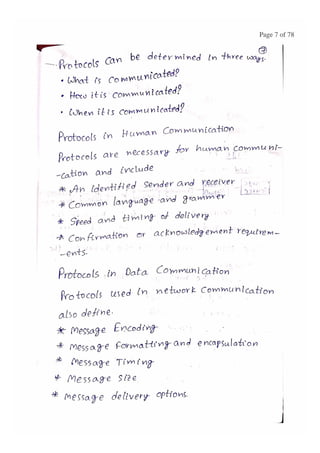 Page 7 of 78
7
Protocols can be determined in three ways.
• What is communicated?
• How it is communicated?
• When it is communicated?
Protocols in Human Communication
Protocols are necessary for human communi-
-cation and include
* An identified sender and receiver
* Common language and grammer
* Speed and timing of delivery
* Confirmation or acknowledgement requirem-
-ents.
Protocols in Data Communication
Protocols used in network communication
also define.
* Message Encoding
* Message formatting and encapsulation
* Message Timing
* Message Size
* Message delivery options.